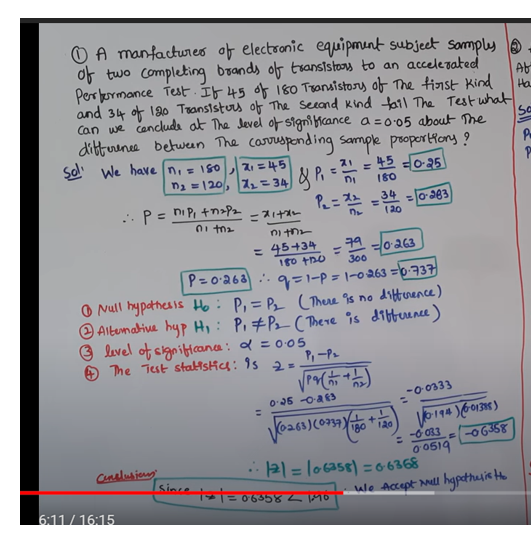 ① A manfacturer of electronic equipment subject samples
of two completing brands of transistors to an accelerated
Performance Test. If 45 of 180 Transistors of The first Kind
and 34 of 120 Transistors of The second Kind fail The Test what
can we conclude at The level of significance a = 0.05 about The
difference between The corrusponding Sample proportions?
②
Af
Ha
So
P
P
Sol: We have n₁ = 180 , x₁ = 45 & P₁ = x₁/n₁ = 45/180 = 0.25
n₂ = 120 , x₂ = 34 P₂ = x₂/n₂ = 34/120 = 0.283
∴ P = n₁P₁ + n₂P₂ / n₁ + n₂ = x₁ + x₂ / n₁ + n₂
= 45+34 / 180+120 = 79/300 = 0.263
P = 0.263 ∴ q = 1-P = 1-0.263 = 0.737
① Null hypothesis H₀ : P₁ = P₂ (There is no difference)
② Alternative hyp H₁ : P₁ ≠ P₂ (There is difference)
③ level of significance: α = 0.05
④ The Test statistics: is Z = P₁ - P₂ / √Pq(1/n₁ + 1/n₂)
= 0.25 - 0.283 / √(0.263)(0.737)(1/180 + 1/120) = -0.0333 / √(0.194)(0.01388)
= -0.033 / 0.0519 = -0.6358
∴ |Z| = |0.6358| = 0.6368
Conclusion:
Since |Z| = 0.6358 < 1.96 ∴ We Accept Null hypothesis H₀
6:11 / 16:15